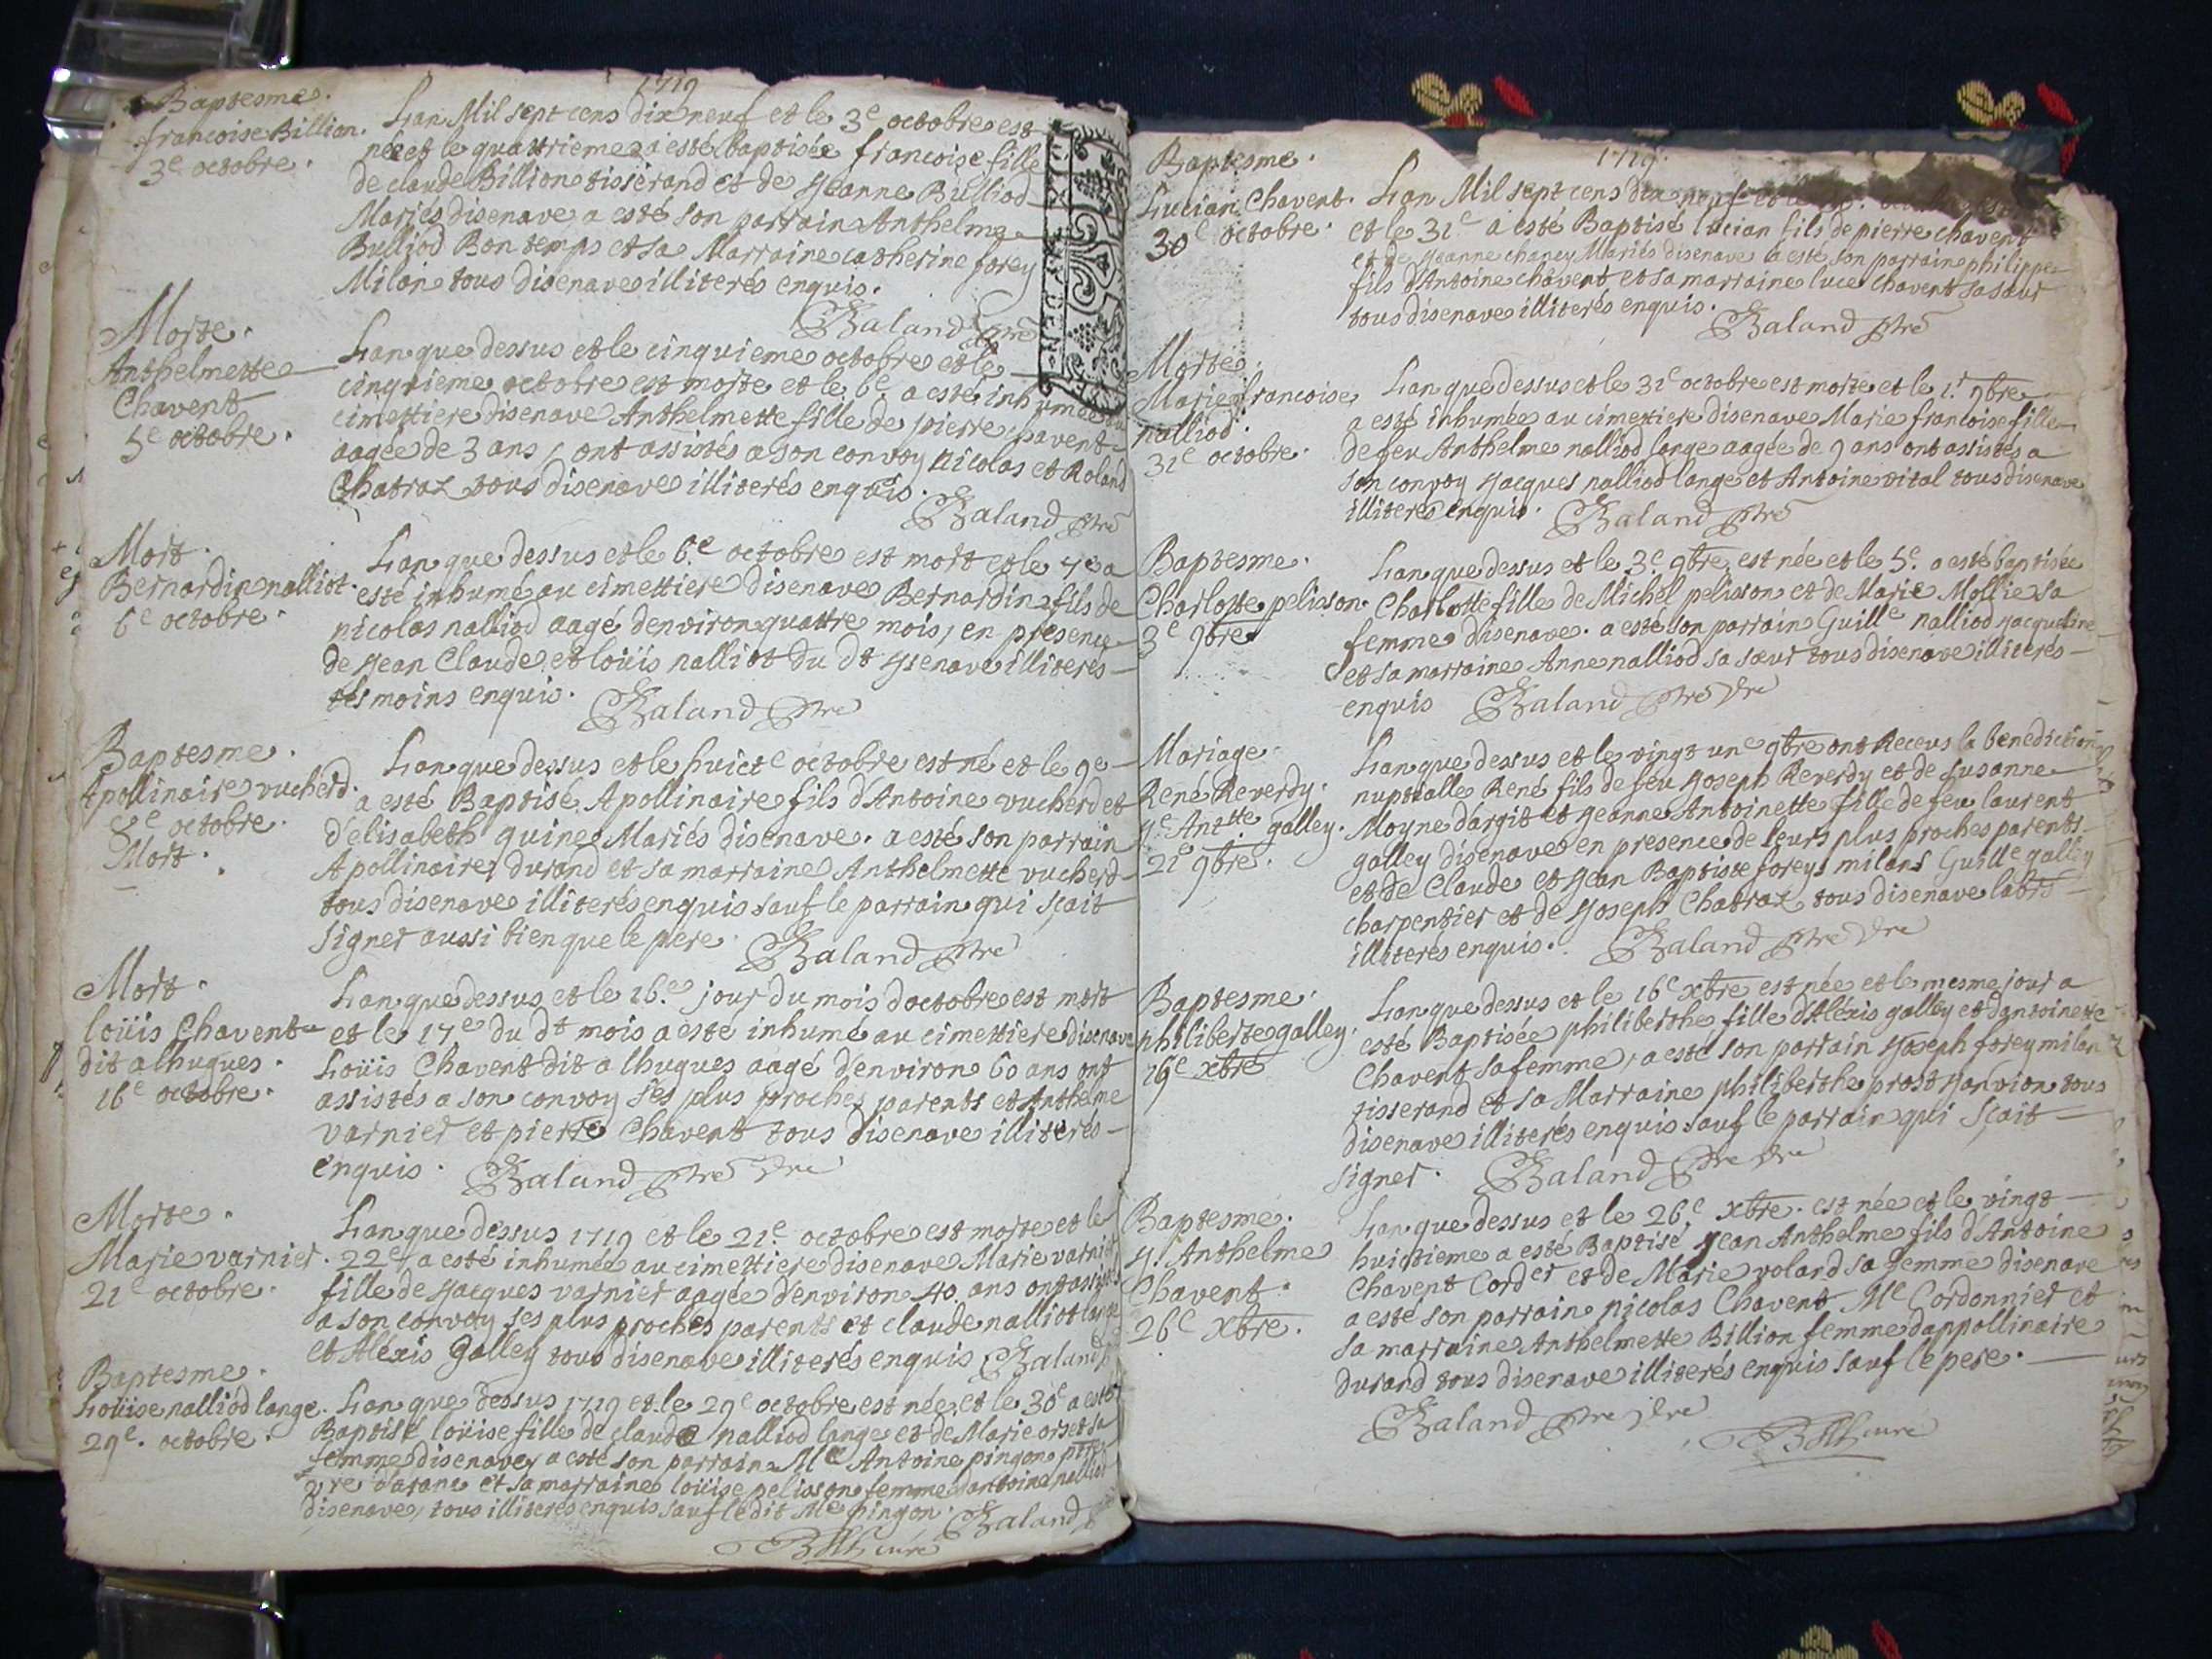 1719
Baptesme.
francoise Billion.
3e octobre.
Lan Mil sept cens dix neuf et le 3e octobre est
née et le quattrieme a esté baptisée francoise fille
de claude Billion tisserand et de Jeanne Bulliod
Mariés disenave a esté son parrain Anthelme
Bulliod Bon temps et sa Marraine catherine forey
Milan tous disenave illiterés enquis.
Baland ptre
Morte.
Anthelmette
Chavent
5e octobre.
Lan que dessus et le cinquieme octobre et le
cinquieme octobre est morte et le 6e. a esté inhumée au
cimettiere disenave Anthelmette fille de pierre chavent
aagée de 3 ans, ont assistés a son convoy nicolas et Roland
Chatraz tous disenave illiterés enquis.
Baland ptre
Mort.
Bernardin nalliot.
6e octobre.
Lan que dessus et le 6.e octobre est mort et le 7e a
esté inhumé au cimettiere disenave Bernardin fils de
nicolas nalliod aagé denviron quattre mois, en presence
de Jean Claude et loüis nalliot du dt Isenave illiterés
tesmoins enquis.
Baland ptre
Baptesme.
Apollinaire vucherd.
8e octobre.
Mort.
Lan que dessus et le huicte octobre est né et le 9e
a esté Baptisé Apollinaire fils d'Antoine vucherd et
d'elisabeth quinet Mariés disenave. a esté son parrain
Apollinaire durand et sa marraine Anthelmette vucherd
tous disenave illiterés enquis sauf le parrain qui sçait
signer aussi bien que le pere.
Baland ptre
Mort.
loüis Chavent
dit alhugues.
16e octobre.
Lan que dessus et le 16.e jour du mois doctobre est mort
et le 17e du dt mois a esté inhumé au cimettiere disenave
Loüis Chavent dit alhugues aagé d'environ 60 ans ont
assistés a son convoy ses plus proches parents et Anthelme
varnier et pierre Chavent tous disenave illiterés
enquis.
Baland ptre vre
Morte.
Marie varnier.
21e octobre.
Lan que dessus 1719 et le 21e octobre est morte et le
22e a esté inhumée au cimettiere disenave Marie varnier
fille de Jacques varnier aagée d'environ 40. ans ont assistés
a son convoy ses plus proches parents et claude nalliot lange
et Aléxis Galley tous disenave illiterés enquis Baland
Baptesme.
Loüise nalliod lange.
29e. octobre.
Lan que dessus 1719 et le 29e octobre est née et le 30e a esté
Baptisé loüise fille de claude nalliod lange et de Marie orset sa
femme disenave, a esté son parrain Me Antoine pingon ptre
vre et sa marraine loüise pelisson femme dantoine nalliod
disenave, tous illiterés enquis sauf ledit Me pingon. Baland
curé
1719.
Baptesme.
Lucian Chavent.
30e octobre.
Lan Mil sept cens dix neuf et le
et le 31e a esté Baptisé lucian fils de pierre chavent
et de Jeanne chaney Mariés disenave a esté son parrain philippe
fils d'Antoine chavent, et sa marraine luce Chavent sa sœur
tous disenave illiterés enquis.
Baland ptre
Morte.
Marie francoise
nalliod.
31e octobre.
Lan que dessus et le 31e octobre est morte et le 1.r 9bre
a esté inhumée au cimettiere disenave Marie francoise fille
de feu Anthelme nalliod lange aagée de 9 ans ont assistés a
son convoy Jacques nalliod lange et Antoine vital tous disenave
illiterés enquis.
Baland ptre
Baptesme.
Charlotte pelisson
3e 9bre
Lan que dessus et le 3e 9bre est née et le 5e. a esté baptisée
Charlotte fille de Michel pelisson et de Marie Mollie sa
femme disenave. a esté son parrain Guille nalliod Jacqueline
et sa marraine Anne nalliod sa sœur tous disenave illiterés
enquis
Baland ptre vre
Mariage.
René Reverdy.
Je Anttte galley.
21e 9bre.
Lan que dessus et le vingt une 9bre ont Receus la benediction
nuptialle René fils de feu Joseph Reverdy et de Susanne
Moyne dargit et Jeanne Antoinette fille de feu laurent
galley disenave en presence de leurs plus proches parents
et de Claude et Jean Baptiste foreys milans Guille galley
charpentier et de Joseph Chatraz tous disenave labrs
illiterés enquis.
Baland ptre vre
Baptesme.
philiberte galley.
16e xbre
Lan que dessus et le 16e xbre est née et le mesme jour a
esté Baptisée philiberthe fille d'Aléxis galley et dantoinette
Chavent sa femme, a esté son parrain Joseph forey milan
tisserand et sa Marraine philiberthe prost Janvion tous
disenave illiterés enquis sauf le parrain qui sçait
signer.
Baland ptre vre
Baptesme.
J. Anthelme
Chavent.
26e xbre.
Lan que dessus et le 26e xbre. est née et le vingt
huictieme a esté Baptisé Jean Anthelme fils d'Antoine
Chavent Corder et de Marie volard sa femme disenave
a esté son parrain nicolas Chavent Me Cordonnier et
sa marraine Anthelmette Billion femme dappollinaire
durand tous disenave illiterés enquis sauf le pere.
Baland ptre vre
curé